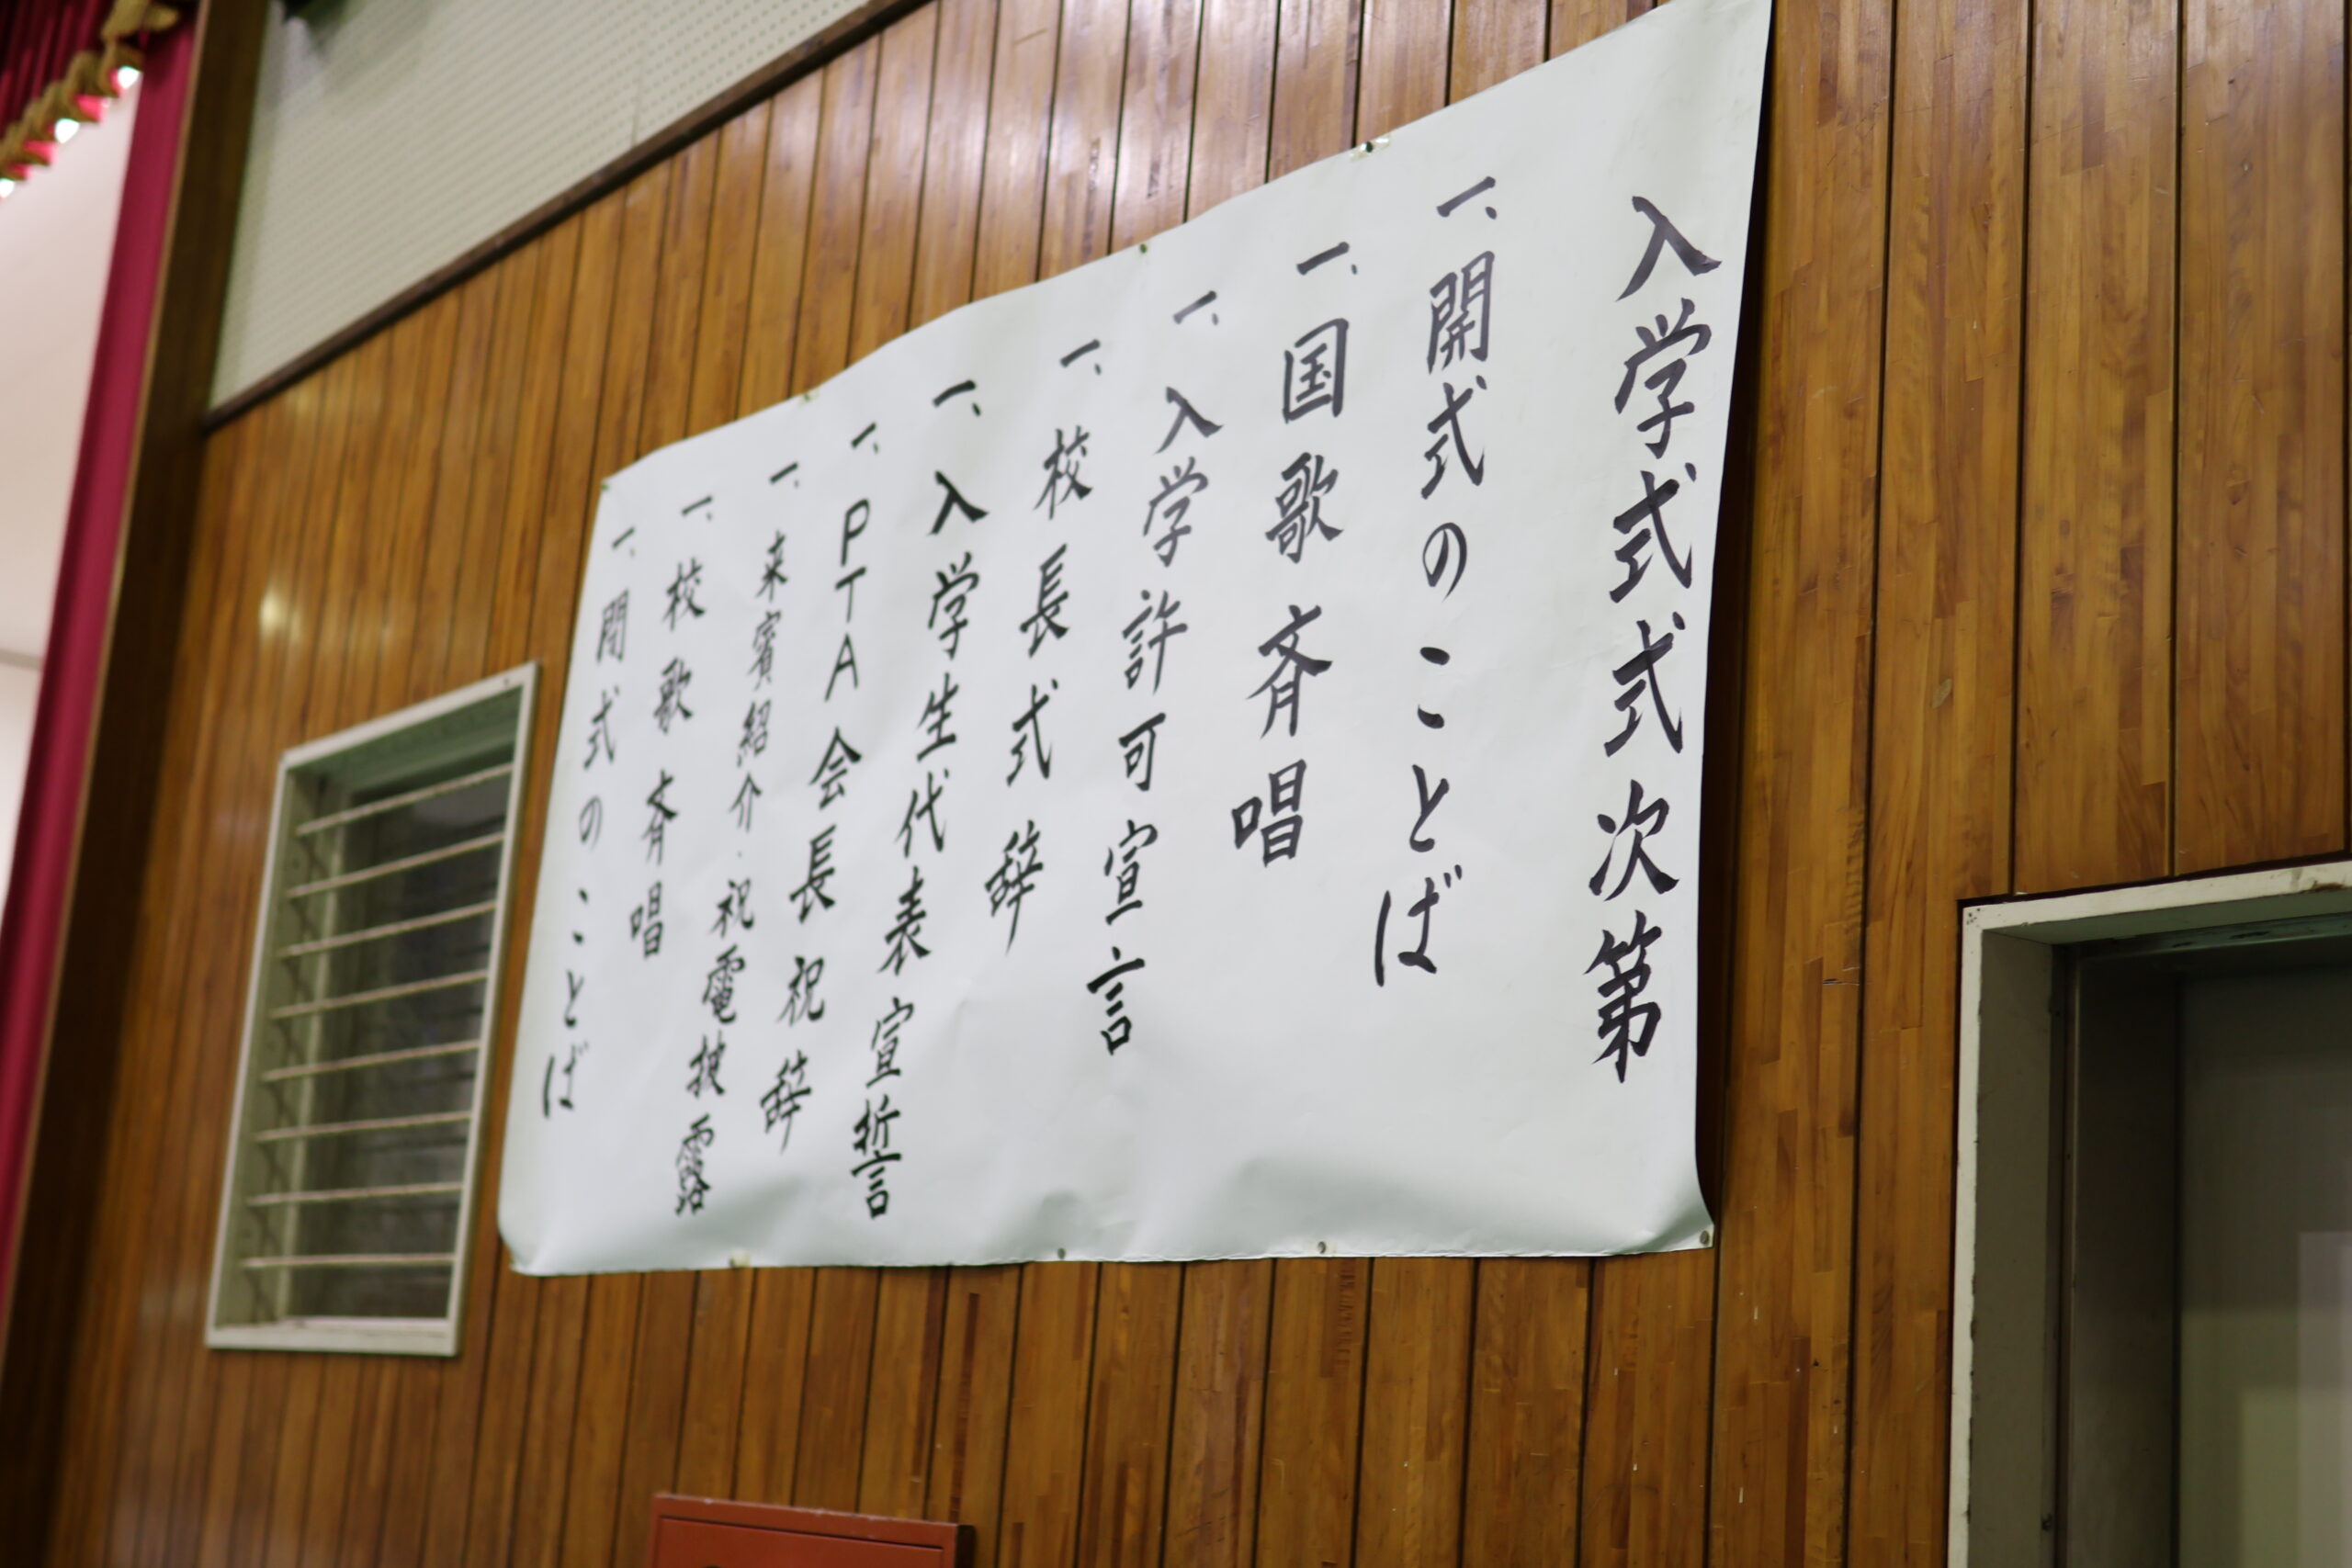 入学式式次第
一、開式のことば
一、国歌斉唱
一、入学許可宣言
一、校長式辞
一、入学生代表宣誓
一、PTA会長祝辞
一、来賓紹介・祝電披露
一、校歌斉唱
一、閉式のことば